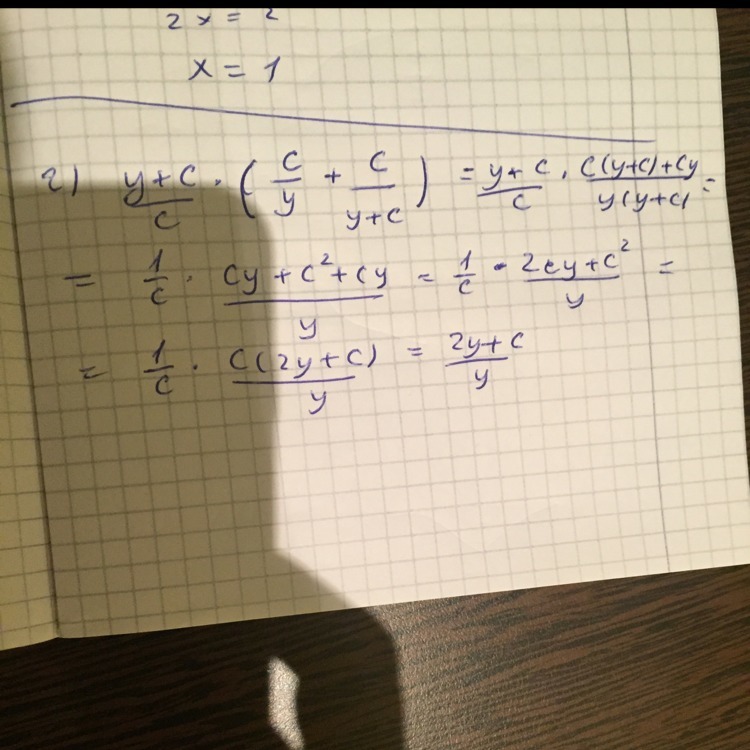 2x = 2
x = 1
2) \frac{y+c}{c} \cdot \left( \frac{c}{y} + \frac{c}{y+c} \right) = \frac{y+c}{c} \cdot \frac{c(y+c)+cy}{y(y+c)} =
= \frac{1}{c} \cdot \frac{cy+c^2+cy}{y} = \frac{1}{c} \cdot \frac{2cy+c^2}{y} =
= \frac{1}{c} \cdot \frac{c(2y+c)}{y} = \frac{2y+c}{y}